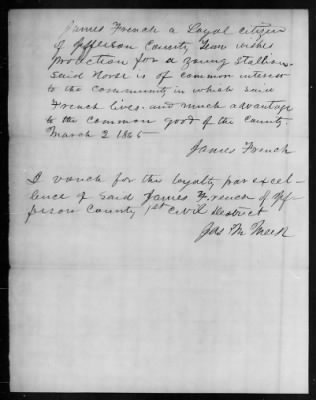 James French a Loyal citizen
of Jefferson County Tenn wishes
protection for a young Stallion
Said Horse is of common interest
to the community in which said
French lives. and much advantage
to the common good of the County.
March 2 1865
James French
I vouch for the loyalty par excel-
lence of Said James French of Jef-
ferson County 1st Civil District
Jas M Meek